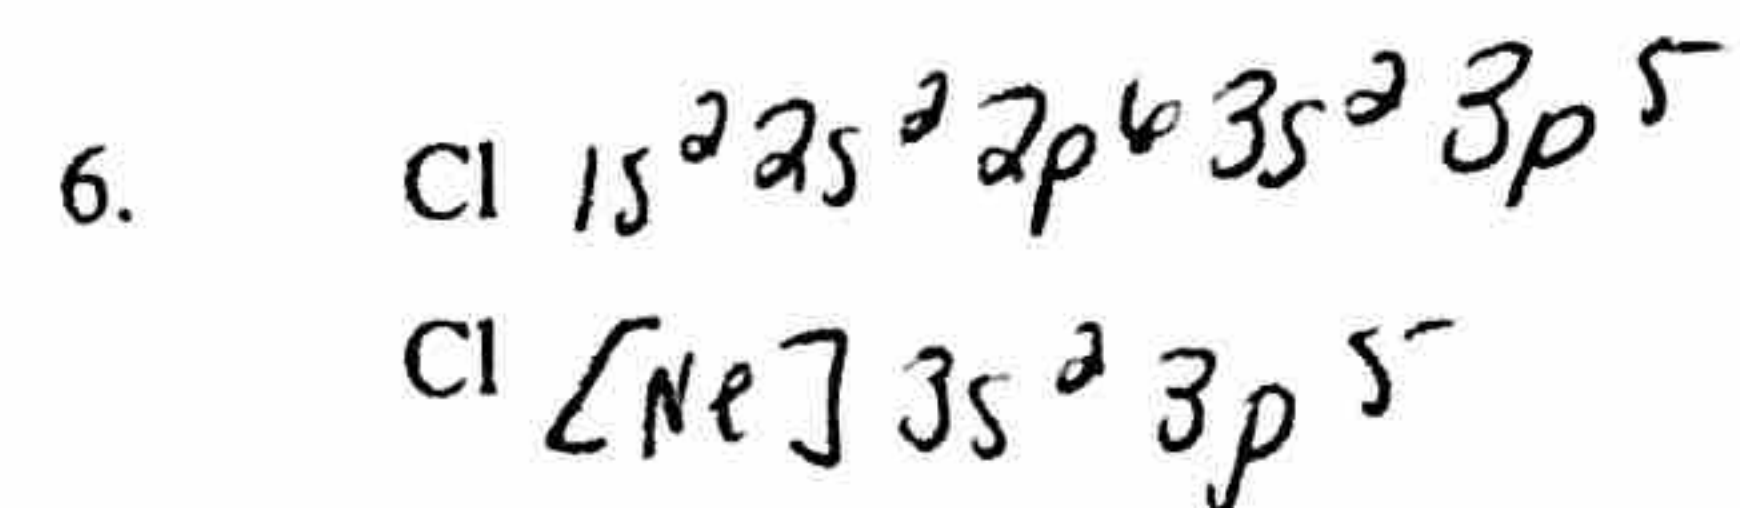 6. Cl 1s² 2s² 2p⁶ 3s² 3p⁵
Cl [Ne] 3s² 3p⁵